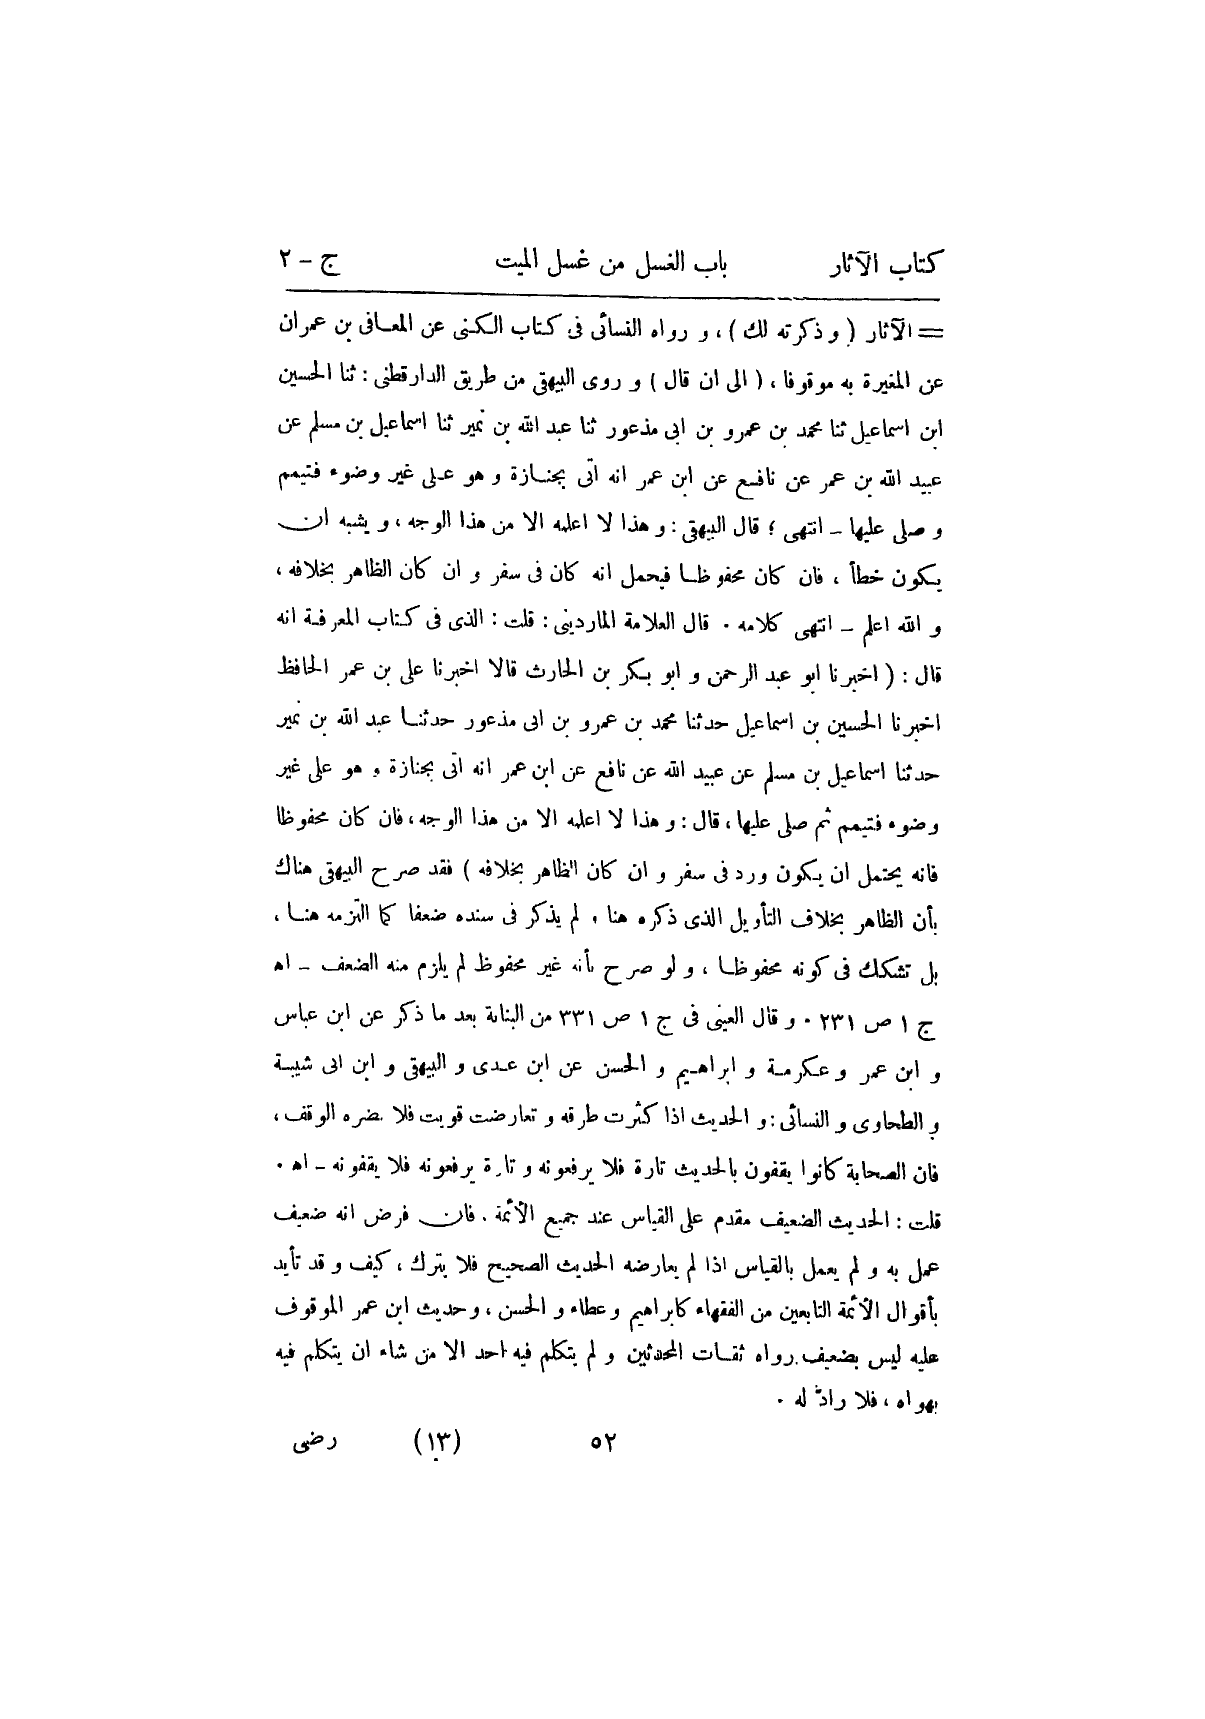 كتاب الآثار باب الغسل من غسل الميت ج - ٢
= الآثار ( و ذكرته لك ) ، و رواه النسائى فى كتاب الكنى عن المعافى بن عمران
عن المغيرة به موقوفا ، ( الى ان قال ) و روى البيهقى من طريق الدارقطنى : ثنا الحسين
ابن اسماعيل ثنا محمد بن عمرو بن ابى مذعور ثنا عبد الله بن نمير ثنا اسماعيل بن مسلم عن
عبيد الله بن عمر عن نافع عن ابن عمر انه اتى بجنازة و هو على غير وضوء فتيمم
و صلى عليها - انتهى ؛ قال البيهقى : و هذا لا اعلمه الا من هذا الوجه ، و يشبه ان
يكون خطأ ، فان كان محفوظا فيحمل انه كان فى سفر و ان كان الظاهر بخلافه ،
و الله اعلم - انتهى كلامه . قال العلامة الماردينى : قلت : الذى فى كتاب المعرفة انه
قال : ( اخبرنا ابو عبد الرحمن و ابو بكر بن الحارث قالا اخبرنا على بن عمر الحافظ
اخبرنا الحسين بن اسماعيل حدثنا محمد بن عمرو بن ابى مذعور حدثنا عبد الله بن نمير
حدثنا اسماعيل بن مسلم عن عبيد الله عن نافع عن ابن عمر انه اتى بجنازة و هو على غير
وضوء فتيمم ثم صلى عليها ، قال : و هذا لا اعلمه الا من هذا الوجه ، فان كان محفوظا
فانه يحتمل ان يكون ورد فى سفر و ان كان الظاهر بخلافه ) فقد صرح البيهقى هناك
بأن الظاهر بخلاف التأويل الذى ذكره هنا . لم يذكر فى سنده ضعفا كما التزمه هنا ،
بل تشكك فى كونه محفوظا ، و لو صرح بأنه غير محفوظ لم يلزم منه الضعف - اه
ج ١ ص ٢٣١ . و قال العينى فى ج ١ ص ٣٣١ من البناية بعد ما ذكر عن ابن عباس
و ابن عمر و عكرمة و ابراهيم و الحسن عن ابن عدى و البيهقى و ابن ابى شيبة
و الطحاوى و النسائى : و الحديث اذا كثرت طرقه و تعارضت قويت فلا يضره الوقف ،
فان الصحابة كانوا يقفون بالحديث تارة فلا يرفعونه و تارة يرفعونه فلا يقفونه - اه .
قلت : الحديث الضعيف مقدم على القياس عند جميع الأئمة . فان فرض انه ضعيف
عمل به و لم يعمل بالقياس اذا لم يعارضه الحديث الصحيح فلا يترك ، كيف و قد تأيد
بأقوال الأئمة التابعين من الفقهاء كابراهيم و عطاء و الحسن ، و حديث ابن عمر الموقوف
عليه ليس بضعيف رواه ثقات المحدثين و لم يتكلم فيه احد الا من شاء ان يتكلم فيه
بهواه ، فلا رادّ له .
٥٢ (١٣) رضى